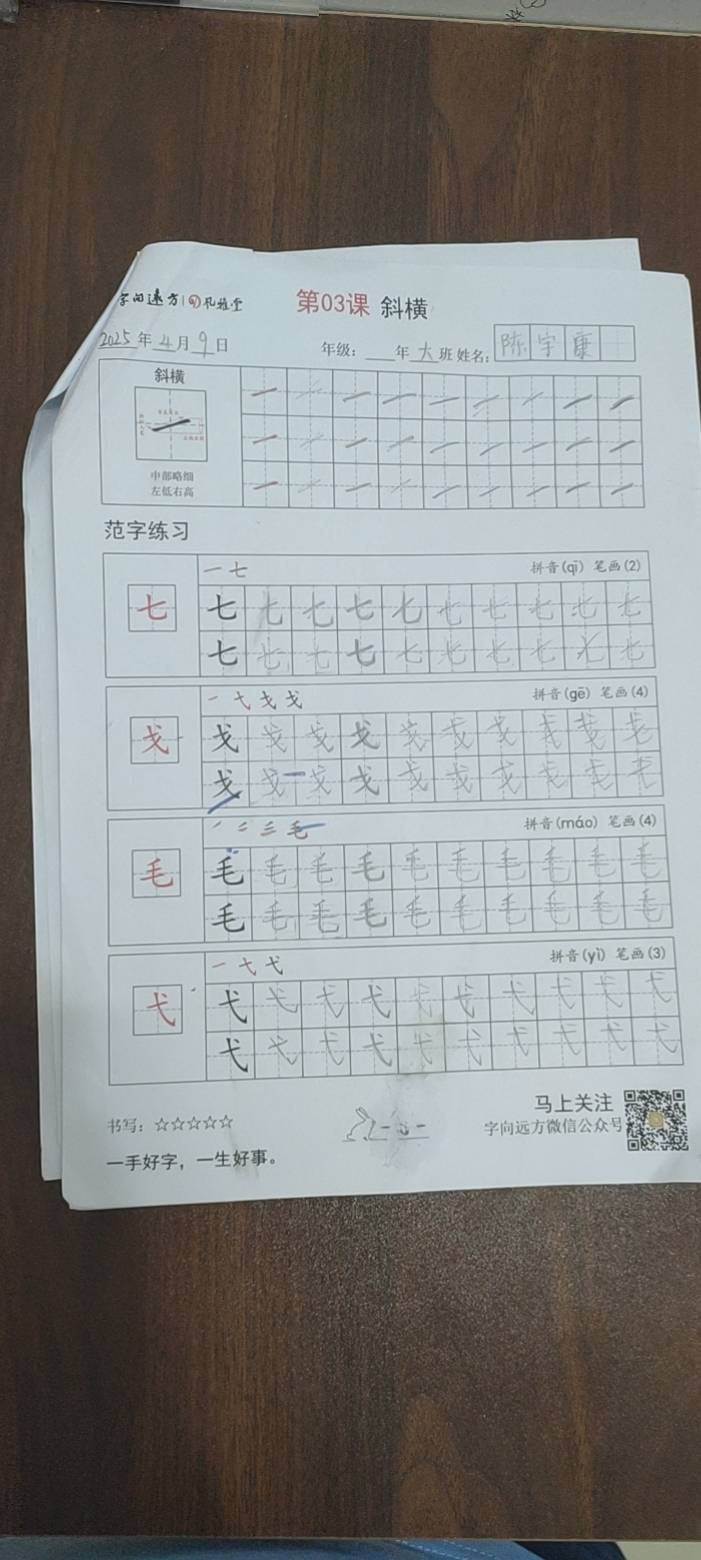 字向遠方 | 风雅堂
第03课 斜横
2025年4月9日 年级：___年大班 姓名：陈宇康
斜横
中部略细
左低右高
范字练习
一 七 拼音(qī) 笔画(2)
七 七 七 七 七 七 七 七 七 七 七
七 七 七 七 七 七 七 七 七 七
拼音(gē) 笔画(4)
戈 戈 戈 戈 戈 戈 戈 戈 戈 戈 戈
戈 戈 戈 戈 戈 戈 戈 戈 戈 戈
毛 拼音(máo) 笔画(4)
毛 毛 毛 毛 毛 毛 毛 毛 毛 毛 毛
毛 毛 毛 毛 毛 毛 毛 毛 毛 毛
弋 拼音(yì) 笔画(3)
弋 弋 弋 弋 弋 弋 弋 弋 弋 弋 弋
弋 弋 弋 弋 弋 弋 弋 弋 弋 弋
书写：☆☆☆☆☆
一手好字，一生好事。
马上关注
字向远方微信公众号